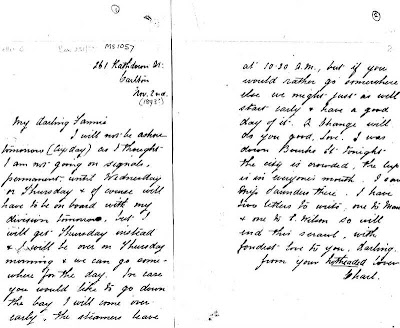 MS 1057
261 Rathdown St.
Carlton
Nov. 2nd.
(1893?)
My darling Fannie
I will not be ashore
tomorrow (Cup day) as I thought
I am not on signals,
permanent, until Wednesday
or Thursday & of course will
have to be on board with my
division tomorrow. but I
will get Thursday instead
& I will be over on Thursday
morning & we can go some-
where for the day. In case
you would like to go down
the bay I will come over
early, the steamers leave
at 10-30 A.M., but if you
would rather go somewhere
else we might just as well
start early & have a good
day of it. A change will
do you good, Love. I was
down Bourke St. tonight
the city is crowded, the Cup
is in everyone's mouth. I saw
Miss Saunders there. I have
two letters to write, one to
& one to L. Wilson so will
end this scrawl, with
fondest love to you, darling,
from your hotheaded lover
Charl.